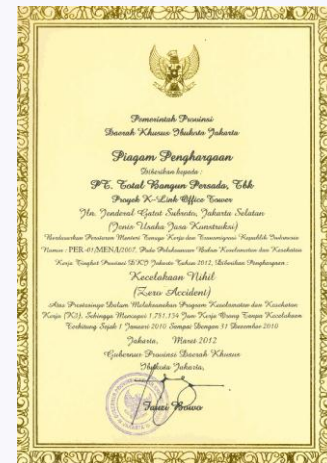 Pemerintah Provinsi
Daerah Khusus Ibukota Jakarta
Piagam Penghargaan
Diberikan kepada :
PT. Total Bangun Persada, Tbk
Proyek K-Link Office Tower
Jln. Jenderal Gatot Subroto, Jakarta Selatan
(Jenis Usaha Jasa Konstruksi)
Berdasarkan Peraturan Menteri Tenaga Kerja dan Transmigrasi Republik Indonesia
Nomor : PER-01/MEN/I/2007, Pada Pelaksanaan Bulan Keselamatan dan Kesehatan
Kerja Tingkat Provinsi DKI Jakarta Tahun 2012, Diberikan Penghargaan :
Kecelakaan Nihil
(Zero Accident)
Atas Prestasinya Dalam Melaksanakan Program Keselamatan dan Kesehatan
Kerja (K3), Sehingga Mencapai 1.751.154 Jam Kerja Orang Tanpa Kecelakaan
Terhitung Sejak 1 Januari 2010 Sampai Dengan 31 Desember 2010
Jakarta, Maret 2012
Gubernur Provinsi Daerah Khusus
Ibukota Jakarta,
Fauzi Bowo